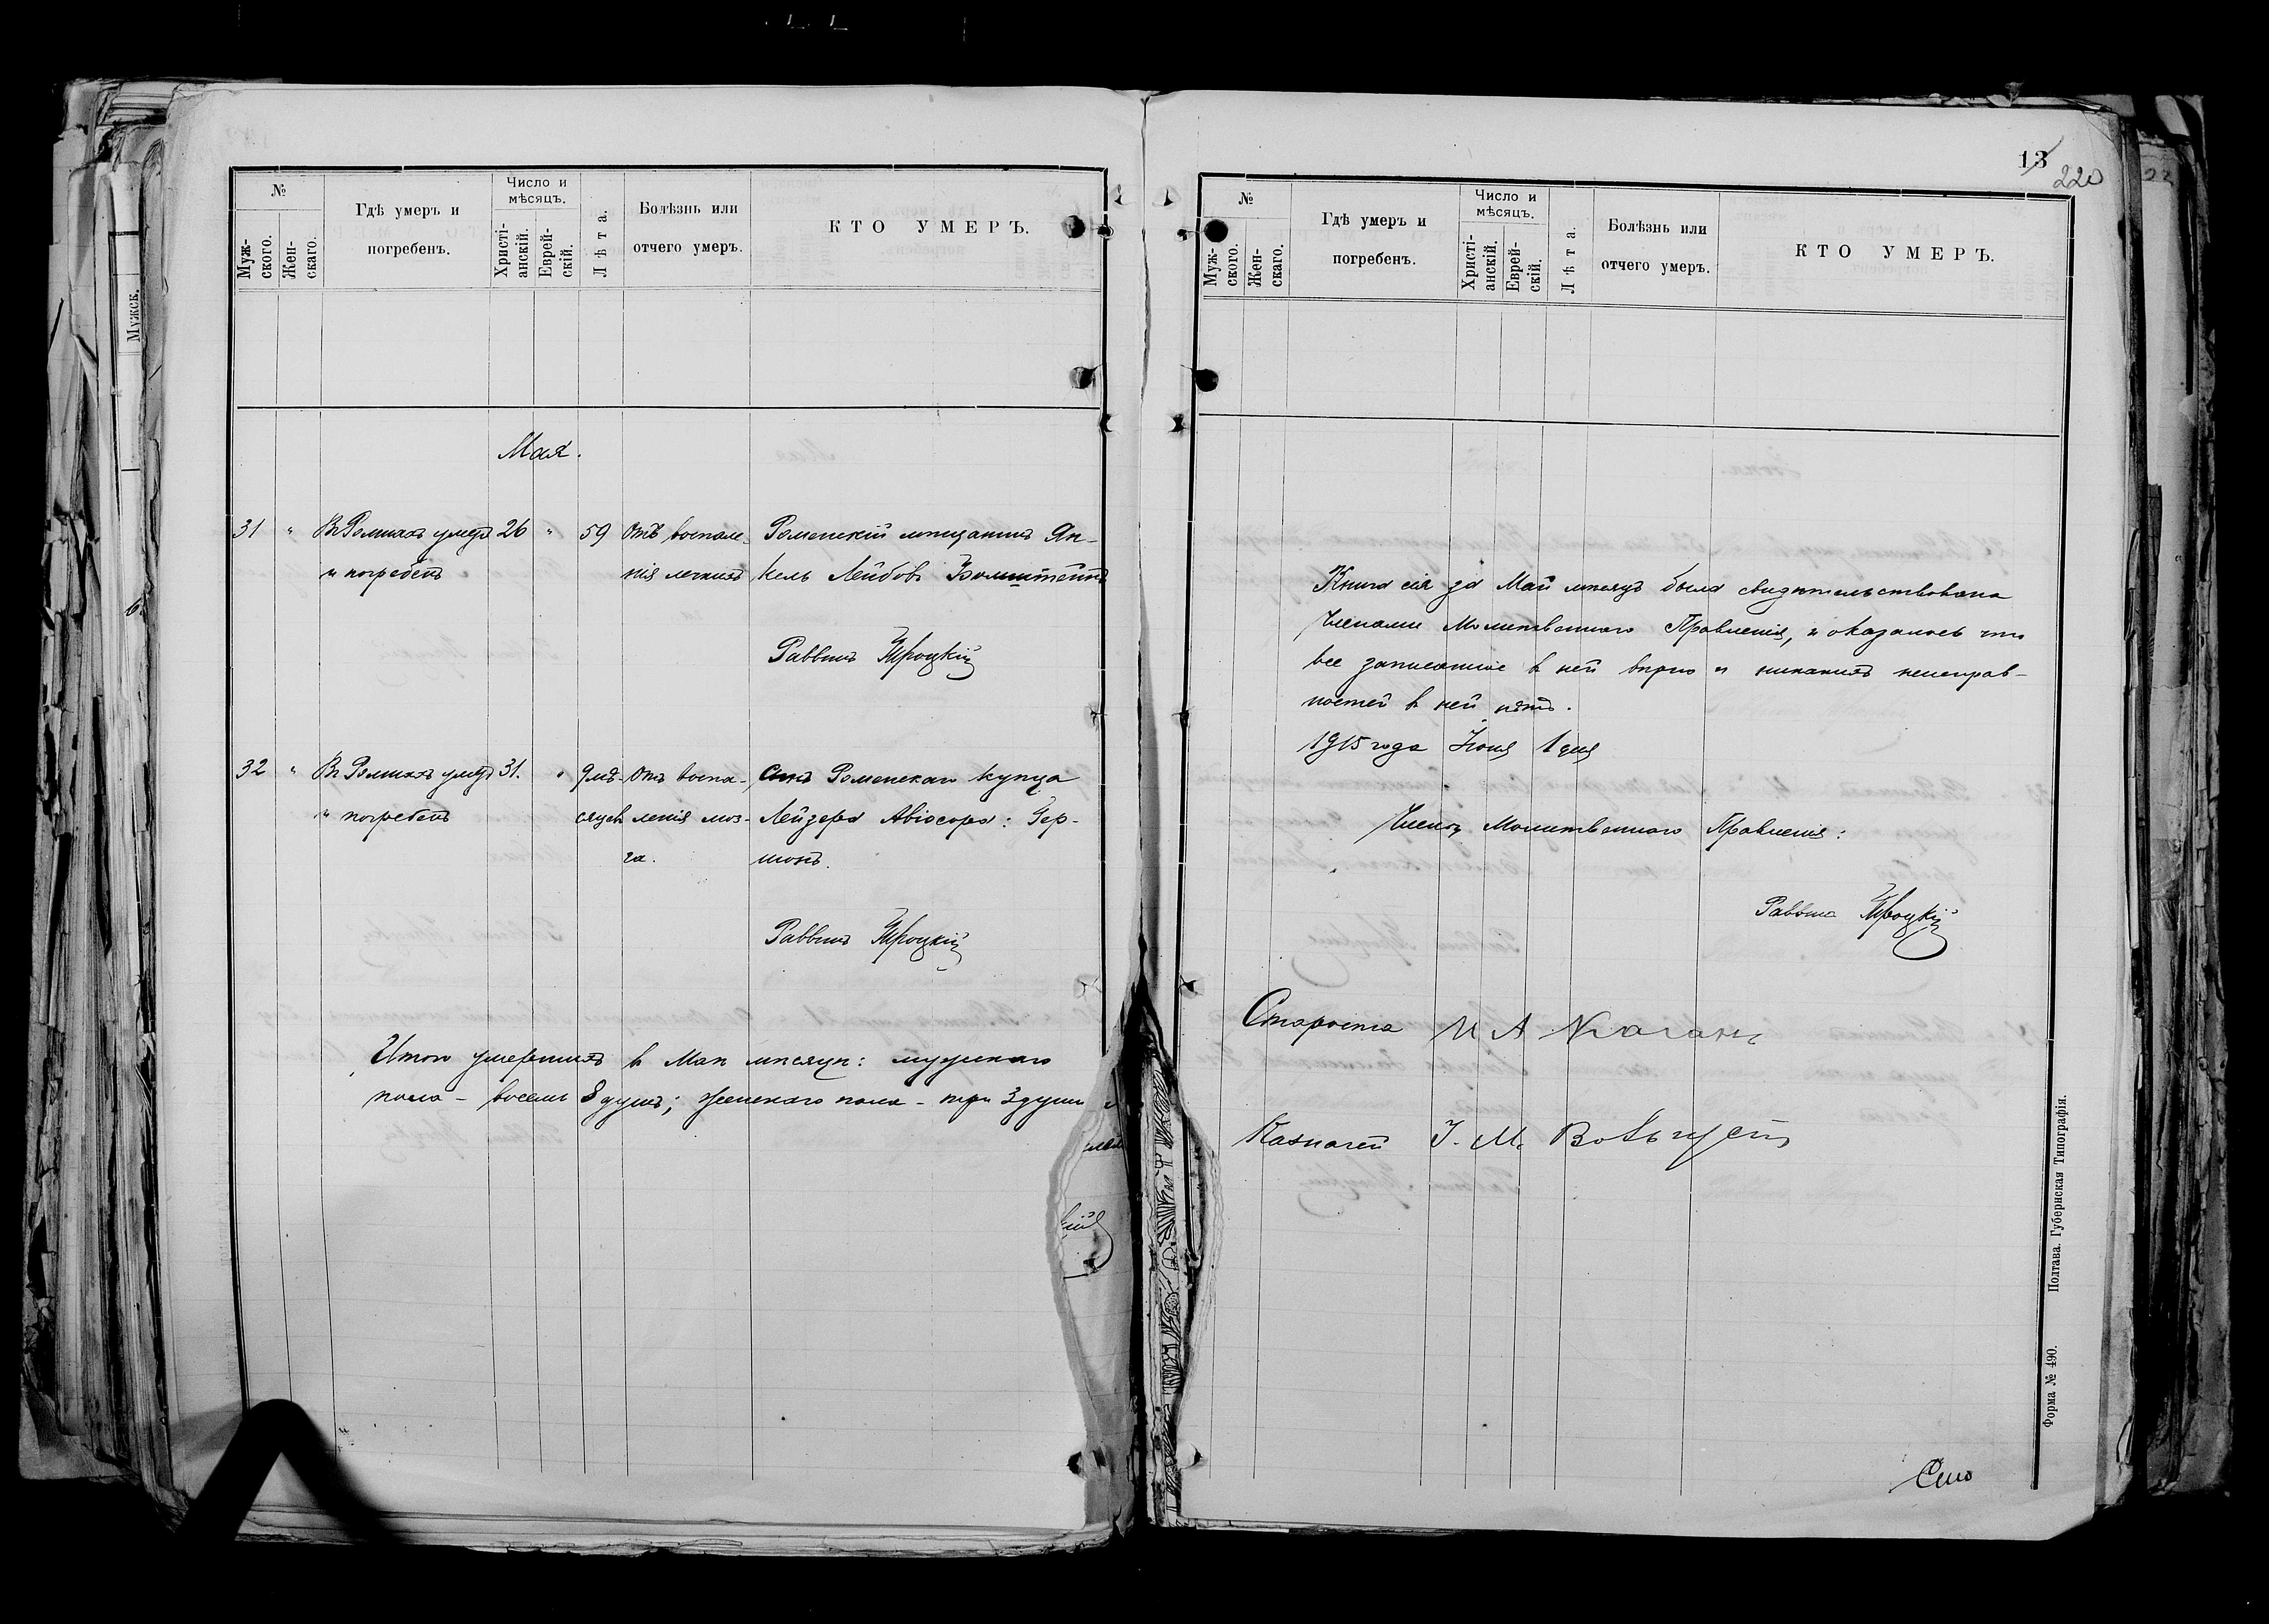 №
Муж-
ского.
Жен-
скаго.
Гдѣ умеръ и
погребенъ.
Число и
мѣсяцъ.
Христі-
анскій.
Еврей-
скій.
Лѣта.
Болѣзнь или
отчего умеръ.
КТО УМЕРЪ.
Мая.
31 " Въ Ромнахъ умеръ 26 " 59 Отъ воспале- Роменскій мѣщанинъ Ян-
и погребенъ нія легкихъ кель Лейбовъ
Раввинъ Троцкій
32 " Въ Ромнахъ умеръ 31. " 9 мѣ- Отъ воспа- Сынъ Роменскаго купца
и погребенъ сяцевъ ленія моз- Лейзера Авіосора: Гер-
га. шонъ.
Раввинъ Троцкій
Итого умершихъ въ Маѣ мѣсяцѣ: мужскаго
пола - восемь 8 душъ; женскаго пола - три 3 души
Мужск.
13
220
№
Муж-
ского.
Жен-
скаго.
Гдѣ умеръ и
погребенъ.
Число и
мѣсяцъ.
Христі-
анскій.
Еврей-
скій.
Лѣта.
Болѣзнь или
отчего умеръ.
КТО УМЕРЪ.
Книга сія за Май мѣсяцъ была свидѣтельствована
Членами Молитвеннаго Правленія, и оказалось что
все записанное въ ней вѣрно и никакихъ неисправ-
ностей въ ней нѣтъ.
1915 года Іюня 1 дня
Члены Молитвеннаго Правленія:
Раввинъ Троцкій
Староста И А Каганъ
Казначей І. М.
Форма № 490. Полтава. Губернская Типографія.